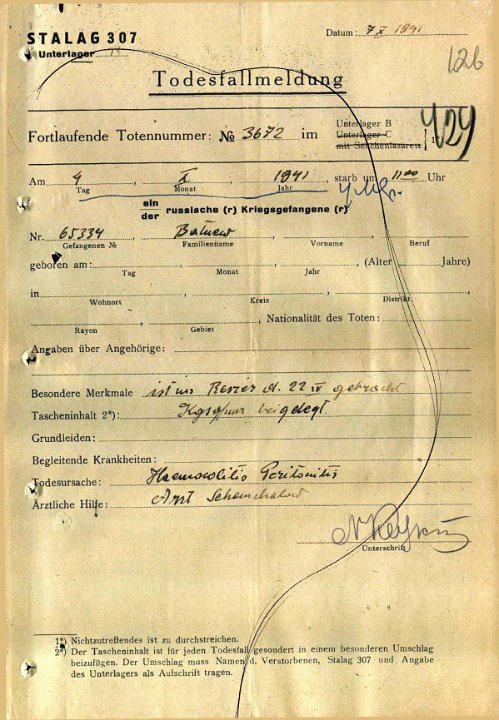 STALAG 307
Unterlager
Datum: 7 X 1941
126
Todesfallmeldung
Fortlaufende Totennummer: № 3672 im
Unterlager B
Unterlager C
mit Seuchenlazarett
429
Am 4 X 1941 starb um 11 00 Uhr
Tag Monat Jahr
ein
der russische (r) Kriegsgefangene (r)
Nr. 65334
Gefangenen № Familienname Vorname Beruf
geboren am: (Alter Jahre)
Tag Monat Jahr
in
Wohnort Kreis Distrikt
Nationalität des Toten:
Rayon Gebiet
Angaben über Angehörige:
Besondere Merkmale ist ins Revier d. 22 gebracht
Tascheninhalt 2*): beigelegt
Grundleiden:
Begleitende Krankheiten:
Todesursache: Peritonitis
Ärztliche Hilfe: Arzt
Unterschrift
1*) Nichtzutreffendes ist zu durchstreichen.
2*) Der Tascheninhalt ist für jeden Todesfall gesondert in einem besonderen Umschlag
beizufügen. Der Umschlag muss Namen d. Verstorbenen, Stalag 307 und Angabe
des Unterlagers als Aufschrift tragen.